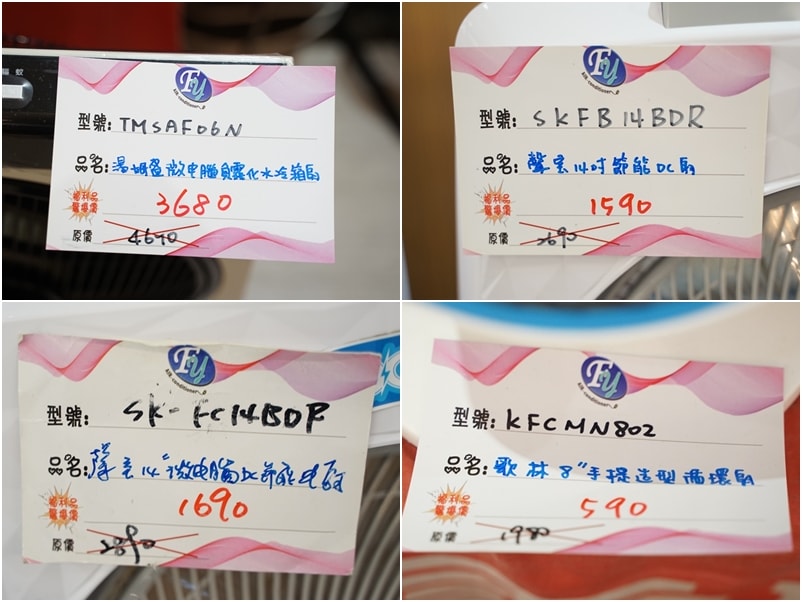 驅蚊
Fy
air conditioner
型號: TMSAF06N
品名: 湯姆盛微电腦負霧化水冷箱扇
福利品
驚爆價
3680
原價 4690
Fy
air conditioner
型號: SKFB14BDR
品名: 聲寶14吋節能DC扇
福利品
驚爆價
1590
原價 2690
Fy
air conditioner
型號: SK-FC14BDR
品名: 聲宝14"微电腦DC節能电扇
福利品
驚爆價
1690
原價
Fy
air conditioner
型號: KFCMN802
品名: 歌林8"手提造型循環扇
福利品
驚爆價
590
原價 1980